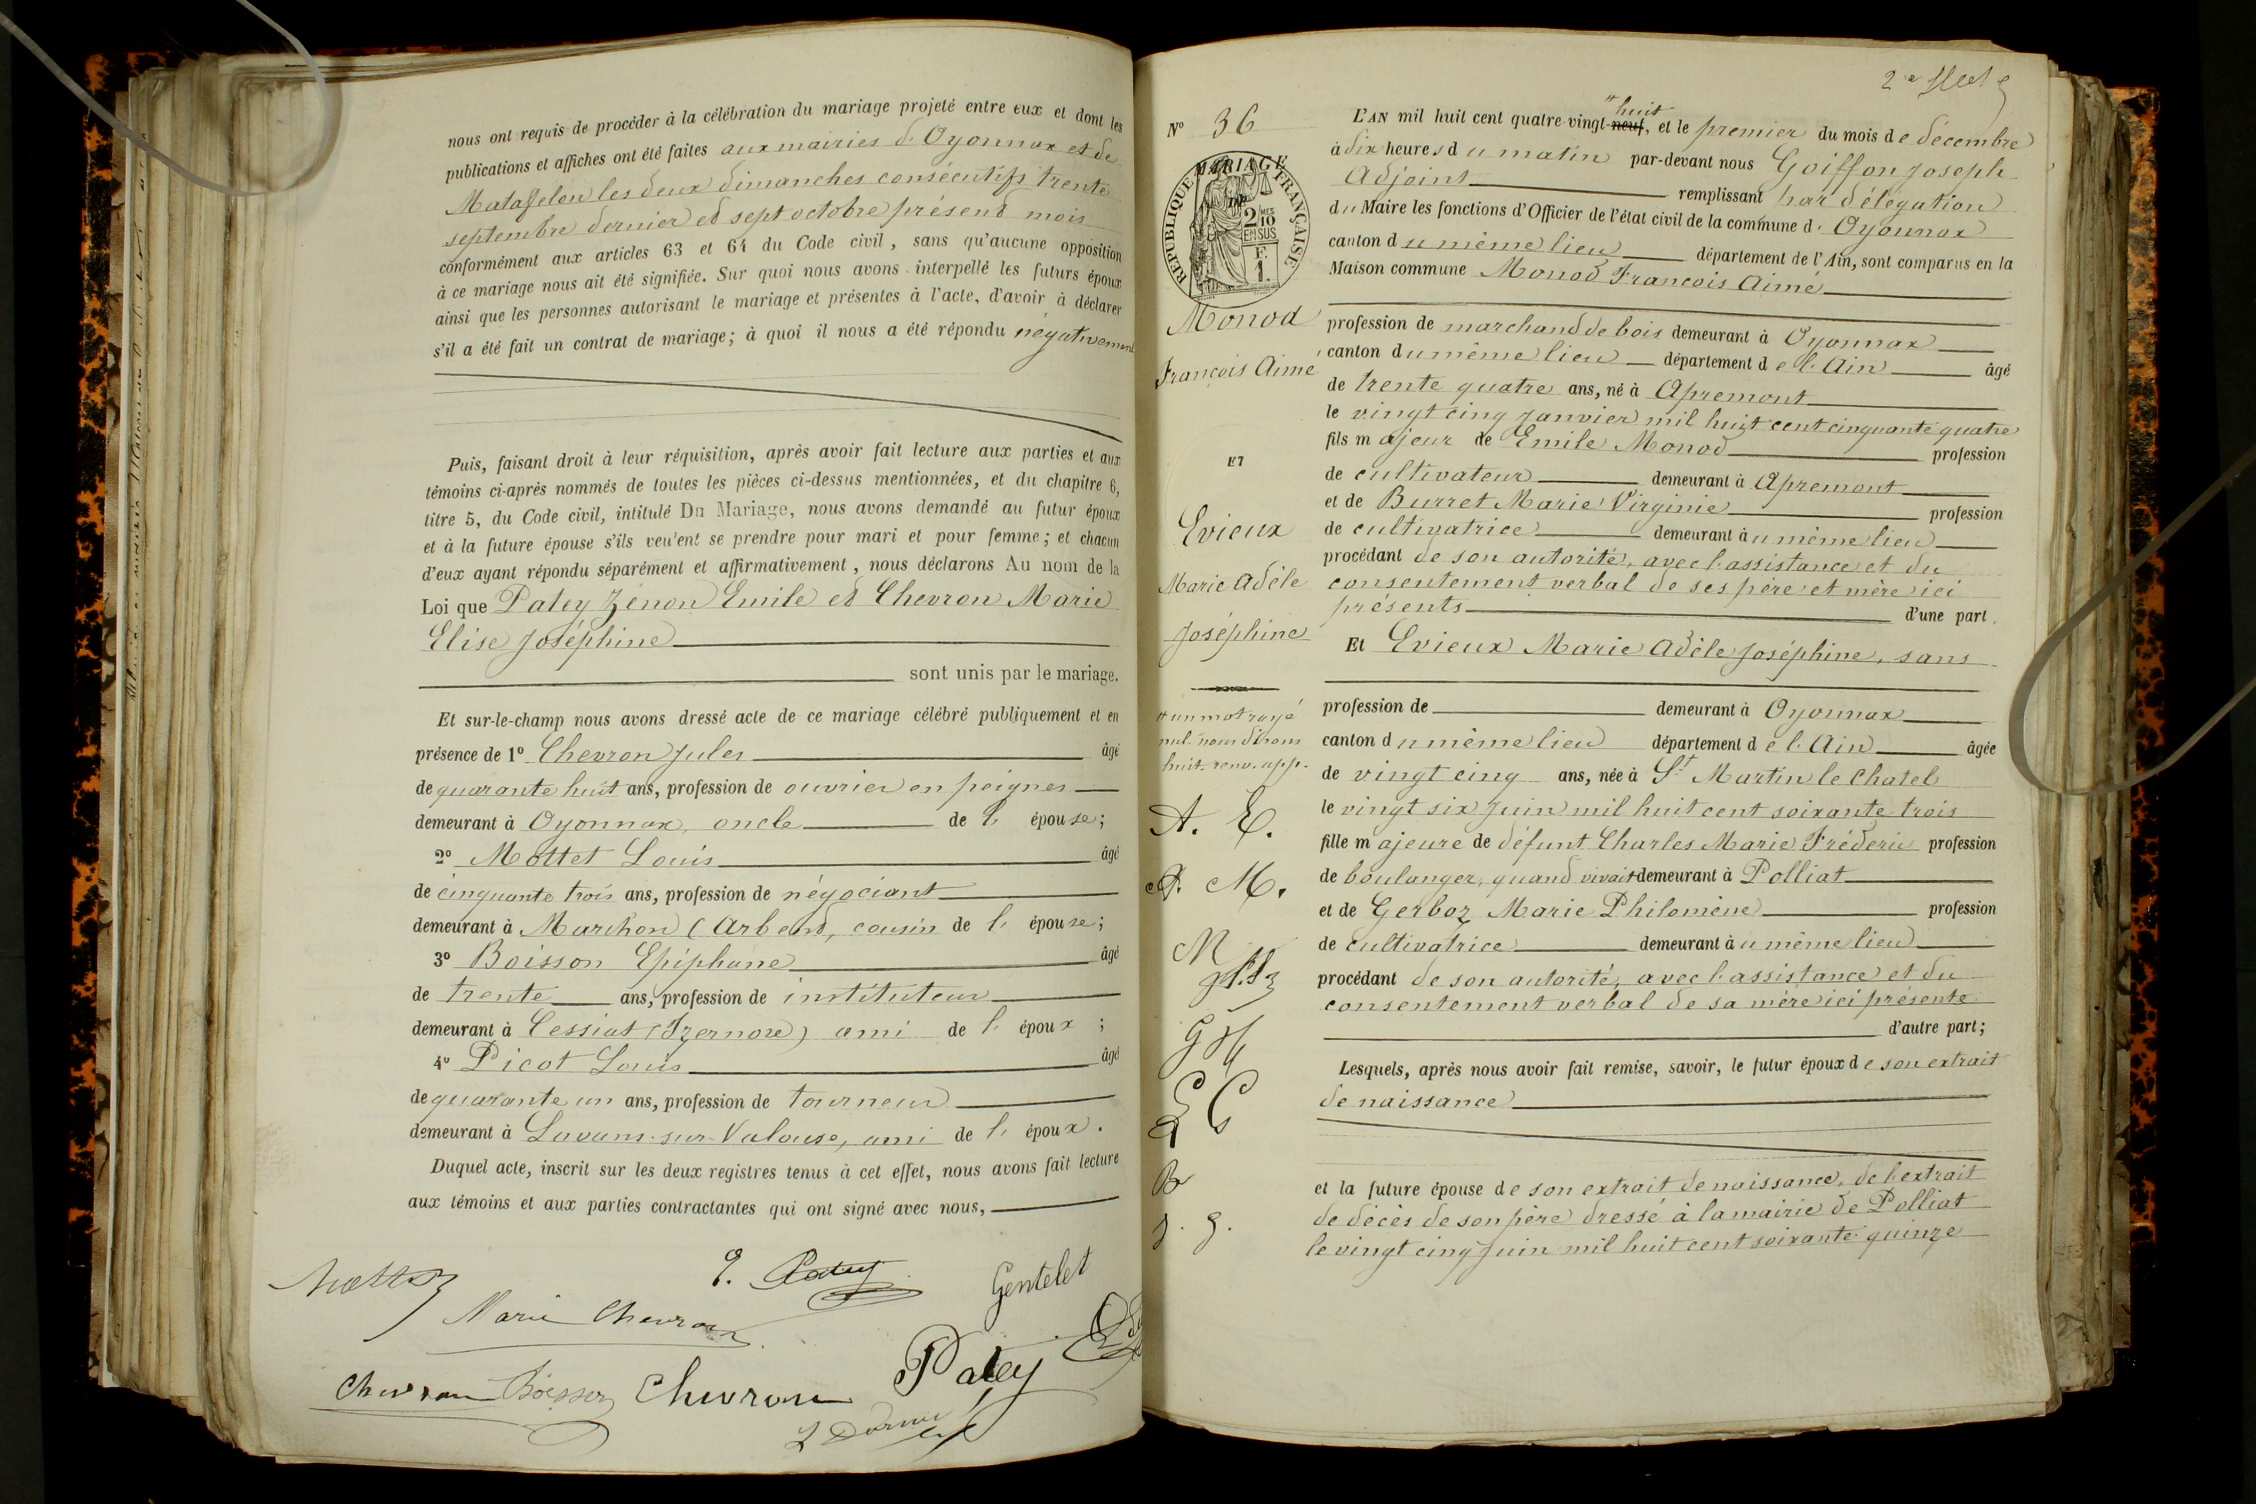 nous ont requis de procéder à la célébration du mariage projeté entre eux et dont les
publications et affiches ont été faites aux mairies d'Oyonnax et de
Matafelon les deux dimanches consécutifs trente
septembre dernier et sept octobre présent mois
conformément aux articles 63 et 64 du Code civil, sans qu'aucune opposition
à ce mariage nous ait été signifiée. Sur quoi nous avons interpellé les futurs époux
ainsi que les personnes autorisant le mariage et présentes à l'acte, d'avoir à déclarer
s'il a été fait un contrat de mariage; à quoi il nous a été répondu négativement
Puis, faisant droit à leur réquisition, après avoir fait lecture aux parties et aux
témoins ci-après nommés de toutes les pièces ci-dessus mentionnées, et du chapitre 6,
titre 5, du Code civil, intitulé Du Mariage, nous avons demandé au futur époux
et à la future épouse s'ils veulent se prendre pour mari et pour femme; et chacun
d'eux ayant répondu séparément et affirmativement, nous déclarons Au nom de la
Loi que Patey Zénon Emile et Chevron Marie
Elise Joséphine
sont unis par le mariage.
Et sur-le-champ nous avons dressé acte de ce mariage célébré publiquement et en
présence de 1º Chevron Jules âgé
de quarante huit ans, profession de ouvrier en peignes
demeurant à Oyonnax, oncle de l' épouse;
2º Mottet Louis âgé
de cinquante trois ans, profession de négociant
demeurant à Marchon (Arbent), cousin de l' épouse;
3º Boisson Epiphane âgé
de trente ans, profession de instituteur
demeurant à Cessiat (Izernore) ami de l' époux;
4º Picot Louis âgé
de quarante un ans, profession de tourneur
demeurant à Lavans-sur-Valouse, ami de l' époux.
Duquel acte, inscrit sur les deux registres tenus à cet effet, nous avons fait lecture
aux témoins et aux parties contractantes qui ont signé avec nous,
Mottet E. Patey Gentelet
Marie Chevron
Chevron Boisson Chevron Patey
2e Acte
Nº 36
MARIAGE
REPUBLIQUE FRANÇAISE
2 MES 10
EN SUS
F.
1.
Monod
François Aimé
ET
Evieux
Marie Adèle
Joséphine
un mot rayé
nul. nous disons
huit. renv. app.
A. E.
A. M.
M
G M
B
J. G.
L'AN mil huit cent quatre-vingt-neuf, huit et le premier du mois de décembre
à dix heures du matin par-devant nous Goiffon Joseph
Adjoint remplissant par délégation
du Maire les fonctions d'Officier de l'état civil de la commune d'Oyonnax
canton du même lieu département de l'Ain, sont comparus en la
Maison commune Monod François Aimé
profession de marchand de bois demeurant à Oyonnax
canton du même lieu département de l'Ain âgé
de trente quatre ans, né à Apremont
le vingt cinq Janvier mil huit cent cinquante quatre
fils majeur de Emile Monod profession
de cultivateur demeurant à Apremont
et de Burret Marie Virginie profession
de cultivatrice demeurant au même lieu
procédant de son autorité, avec l'assistance et du
consentement verbal de ses père et mère ici
présents d'une part.
Et Evieux Marie Adèle Joséphine, sans
profession de demeurant à Oyonnax
canton du même lieu département de l'Ain âgée
de vingt cinq ans, née à St Martin le Chatel
le vingt six Juin mil huit cent soixante trois
fille majeure de défunt Charles Marie Frédéric profession
de boulanger, quand vivait demeurant à Polliat
et de Gerboz Marie Philomène profession
de cultivatrice demeurant au même lieu
procédant de son autorité, avec l'assistance et du
consentement verbal de sa mère ici présente
d'autre part;
Lesquels, après nous avoir fait remise, savoir, le futur époux de son extrait
de naissance
et la future épouse de son extrait de naissance, de l'extrait
de décès de son père dressé à la mairie de Polliat
le vingt cinq Juin mil huit cent soixante quinze